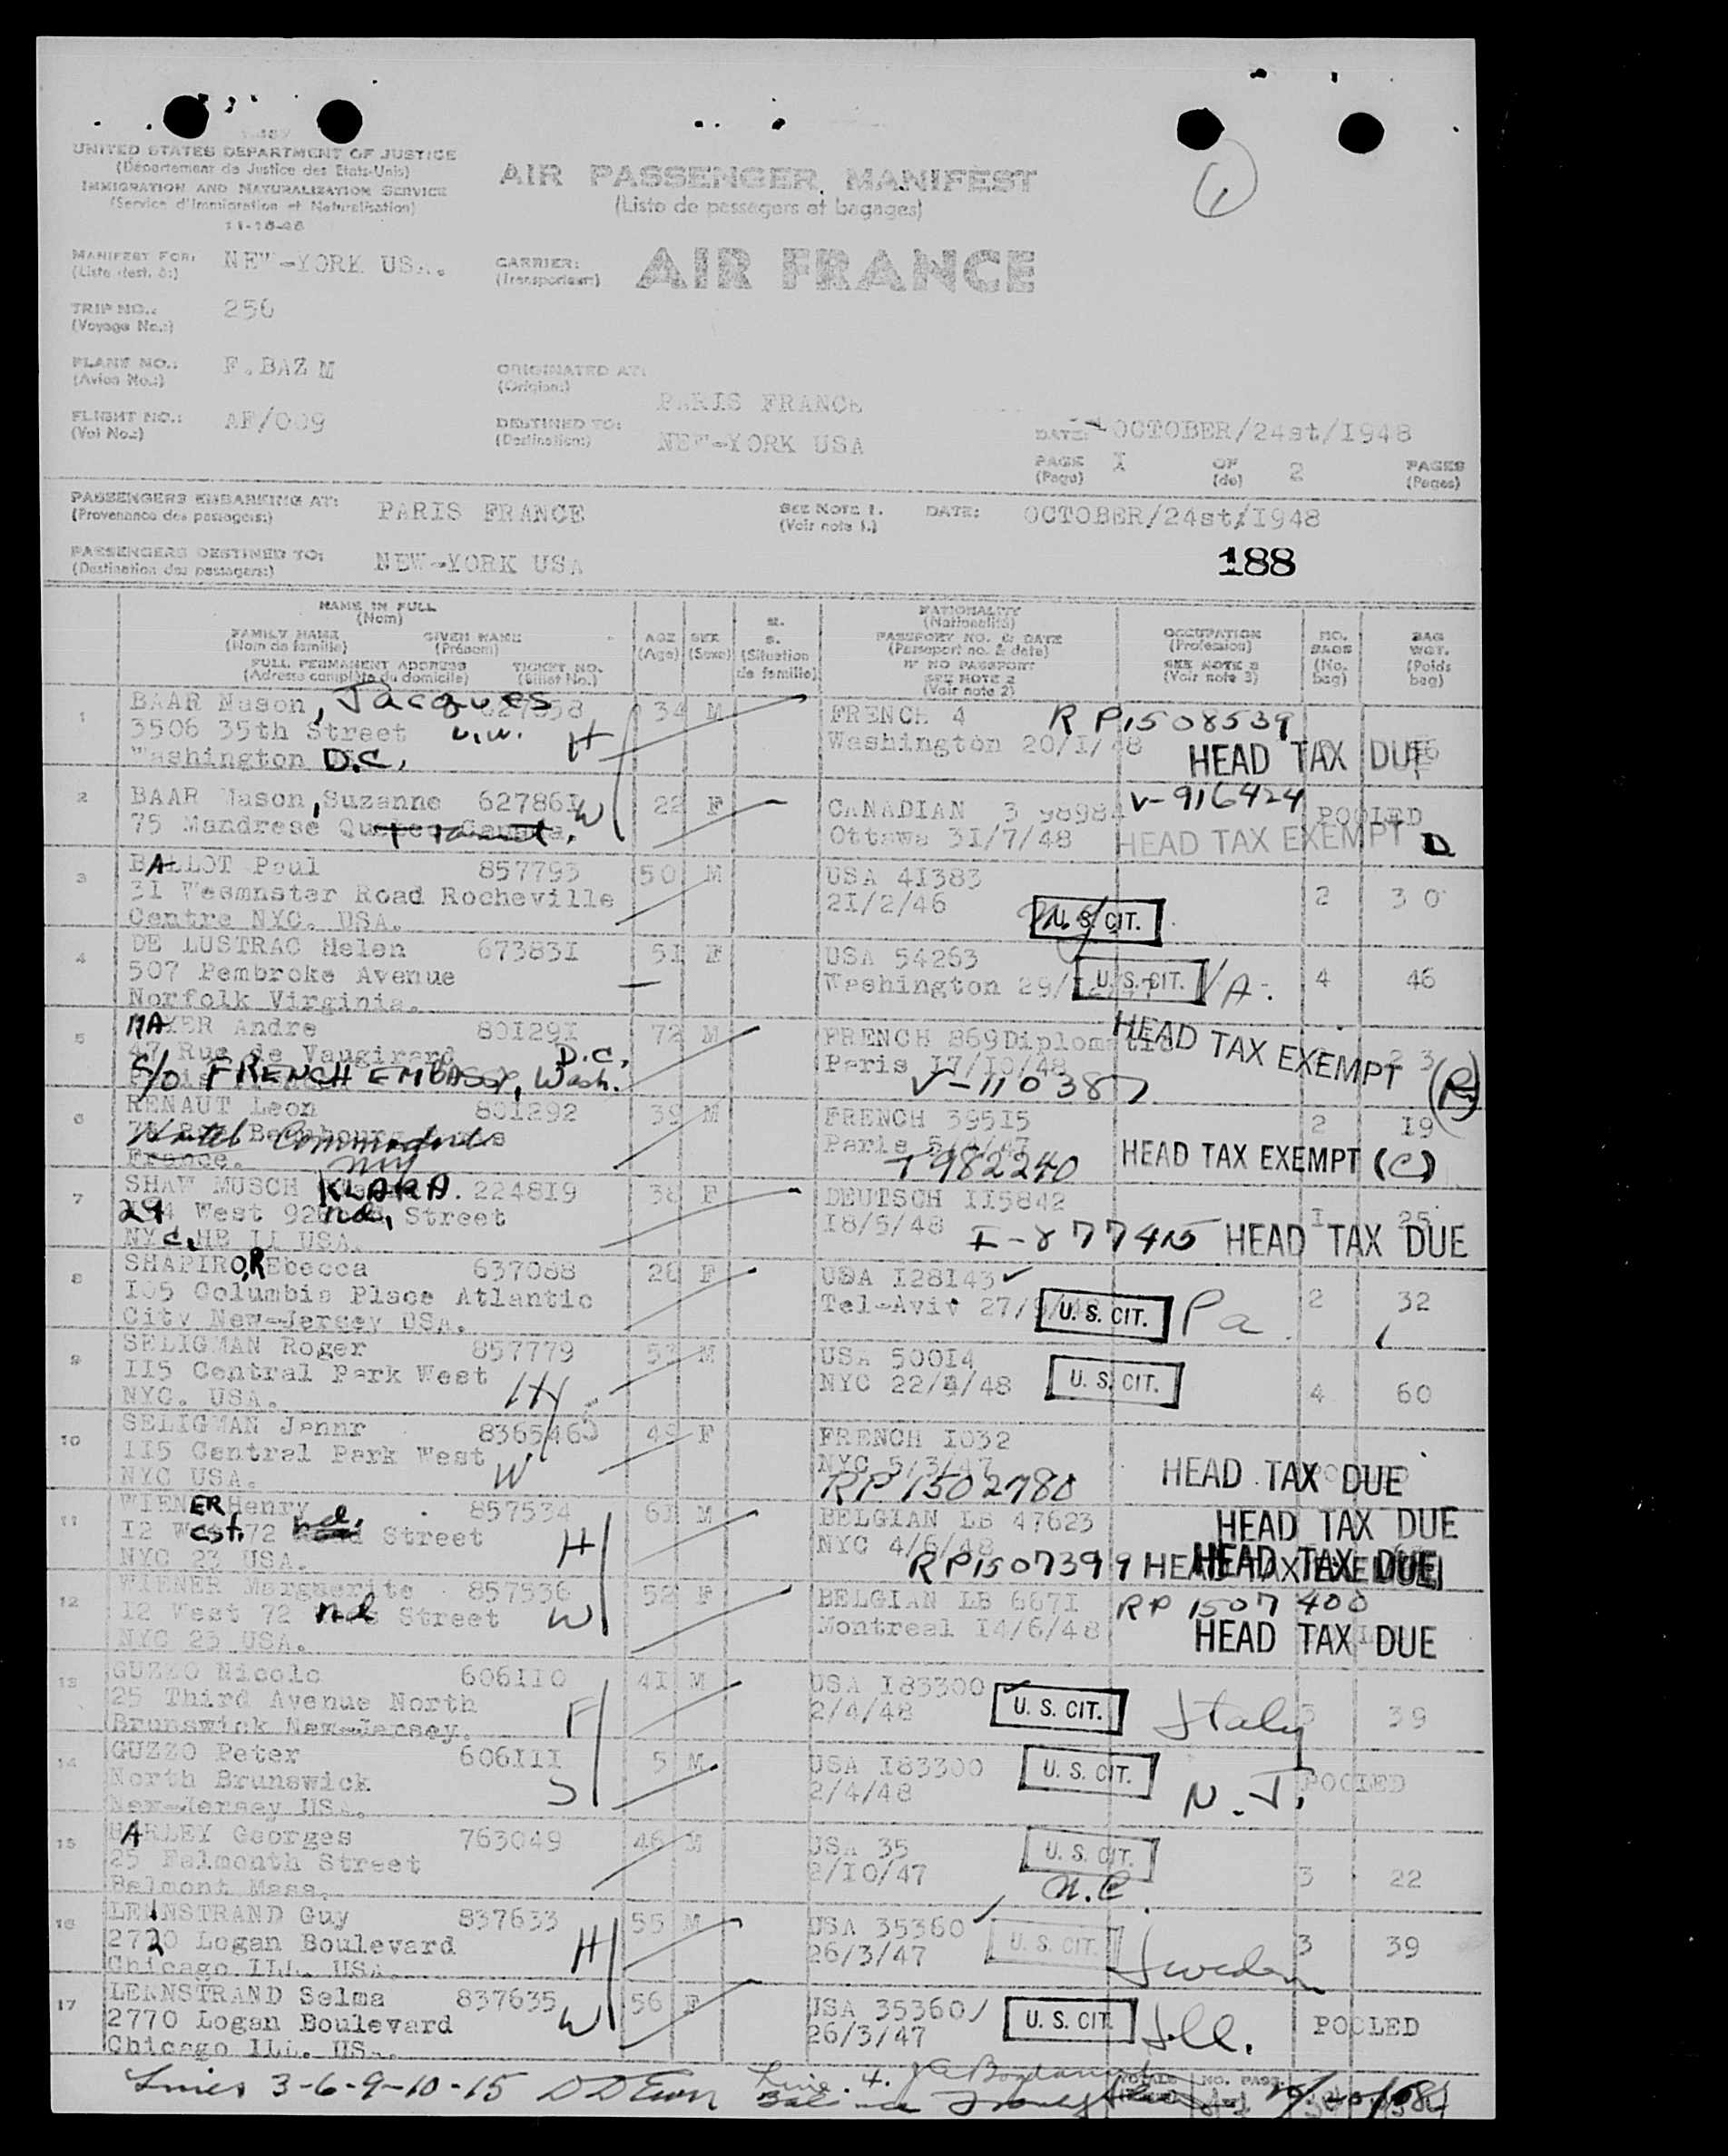 UNITED STATES DEPARTMENT OF JUSTICE
(Département de Justice des Etats-Unis)
IMMIGRATION AND NATURALIZATION SERVICE
(Service d'Immigration et Naturalisation)
11-18-46
AIR PASSENGER MANIFEST
(Liste de passagers et bagages)
1
MANIFEST FOR: NEW-YORK USA.
(Liste dest. à:)
CARRIER: AIR FRANCE
(Transporteur:)
TRIP NO.: 256
(Voyage No.:)
PLANE NO.: F.BAZ M
(Avion No.:)
ORIGINATED AT:
(Origine:)
PARIS FRANCE
FLIGHT NO.: AF/009
(Vol No.:)
DESTINED TO:
(Destination:)
NEW-YORK USA
DATE: OCTOBER/24st/1948
PAGE I OF 2 PAGES
(Page) (de) (Pages)
PASSENGERS EMBARKING AT: PARIS FRANCE
(Provenance des passagers:)
SEE NOTE 1. DATE: OCTOBER/24st/1948
(Voir note 1.)
PASSENGERS DESTINED TO: NEW-YORK USA
(Destination des passagers:)
188
NAME IN FULL
(Nom)
FAMILY NAME GIVEN NAME
(Nom de famille) (Prénom)
FULL PERMANENT ADDRESS TICKET NO.
(Adresse complète du domicile) (Billet No.)
AGE
(Age)
SEX
(Sexe)
M.
S.
(Situation
de famille)
NATIONALITY
(Nationalité)
PASSPORT NO. & DATE
(Passeport no. & date)
IF NO PASSPORT
SEE NOTE 2
(Voir note 2)
OCCUPATION
(Profession)
SEE NOTE 3
(Voir note 3)
NO.
BAGS
(No.
bag)
BAG
WGT.
(Poids
bag)
1 BAAR Nason, Jacques 34 M FRENCH 4 RP1508539
3506 35th Street N.W. H Washington 20/1/48 HEAD TAX DUE
Washington D.C.
2 BAAR Nason, Suzanne 627861 W 22 F CANADIAN V-916424 POOLED
75 Mandrese Ottawa 31/7/48 HEAD TAX EXEMPT D
3 BALLOT Paul 857793 50 M USA 41383 2 30
31 Wesmnster Road Rocheville 21/2/46 U.S. CIT.
Centre NYC. USA.
4 DE LUSTRAC Helen 673831 51 F USA 54263 4 46
507 Pembroke Avenue Washington U.S. CIT. VA.
Norfolk Virginia.
5 MAYER Andre 801291 72 M FRENCH 869 Diplomatic HEAD TAX EXEMPT
47 Rue de Vaugirard D.C. Paris 17/10/48
C/O FRENCH EMBASSY, Wash. V-110387
6 RENAUT Leon 801292 39 M FRENCH 39515 2 19
Hotel Commodore Paris HEAD TAX EXEMPT (C)
France. NYC T982240
7 SHAW MUSCH KLARA. 224819 38 F DEUTSCH 115842 1 25
West 92nd, Street 18/5/48 I-877415 HEAD TAX DUE
NYC. USA.
8 SHAPIRO, REbecca 637088 26 F USA 128143 2 32
105 Columbia Place Atlantic Tel-Aviv U.S. CIT. Pa
City New-Jersey USA.
9 SELIGMAN Roger 857779 53 M USA 50014
115 Central Park West NYC 22/4/48 U.S. CIT. 4 60
NYC. USA. H
10 SELIGMAN Jennr 836546 F FRENCH 1032
115 Central Park West NYC 5/3/47 HEAD TAX DUE
NYC USA. W RP 1502780
11 WIENER Henry 857534 61 M BELGIAN LB 47623 HEAD TAX DUE
12 West 72 nd. Street H NYC 4/6/48 HEAD TAX DUE
NYC 23 USA. RP1507399
12 WIENER Marguerite 857536 52 F BELGIAN LB 6671 RP 1507400
12 West 72 nd Street W Montreal 14/6/48 HEAD TAX DUE
NYC 23 USA.
13 GUZZO Nicolo 606110 41 M USA 183300 3 39
25 Third Avenue North F 2/4/48 U.S. CIT. Italy
Brunswick New-Jersey.
14 GUZZO Peter 606111 5 M USA 183300 U.S. CIT. POOLED
North Brunswick S 2/4/48 N.J.
New-Jersey USA.
15 HARLEY Georges 763049 46 M USA 35 U.S. CIT.
25 Falmouth Street 2/10/47 3 22
Belmont Mass. N.C.
16 LENNSTRAND Guy 837633 55 M USA 35360
2720 Logan Boulevard H 26/3/47 U.S. CIT. Sweden 3 39
Chicago ILL. USA.
17 LENNSTRAND Selma 837635 56 F USA 35360 U.S. CIT Ill. POOLED
2770 Logan Boulevard W 26/3/47
Chicago ILL. USA.
Lines 3-6-9-10-15 Line 4.
NO. PASS.